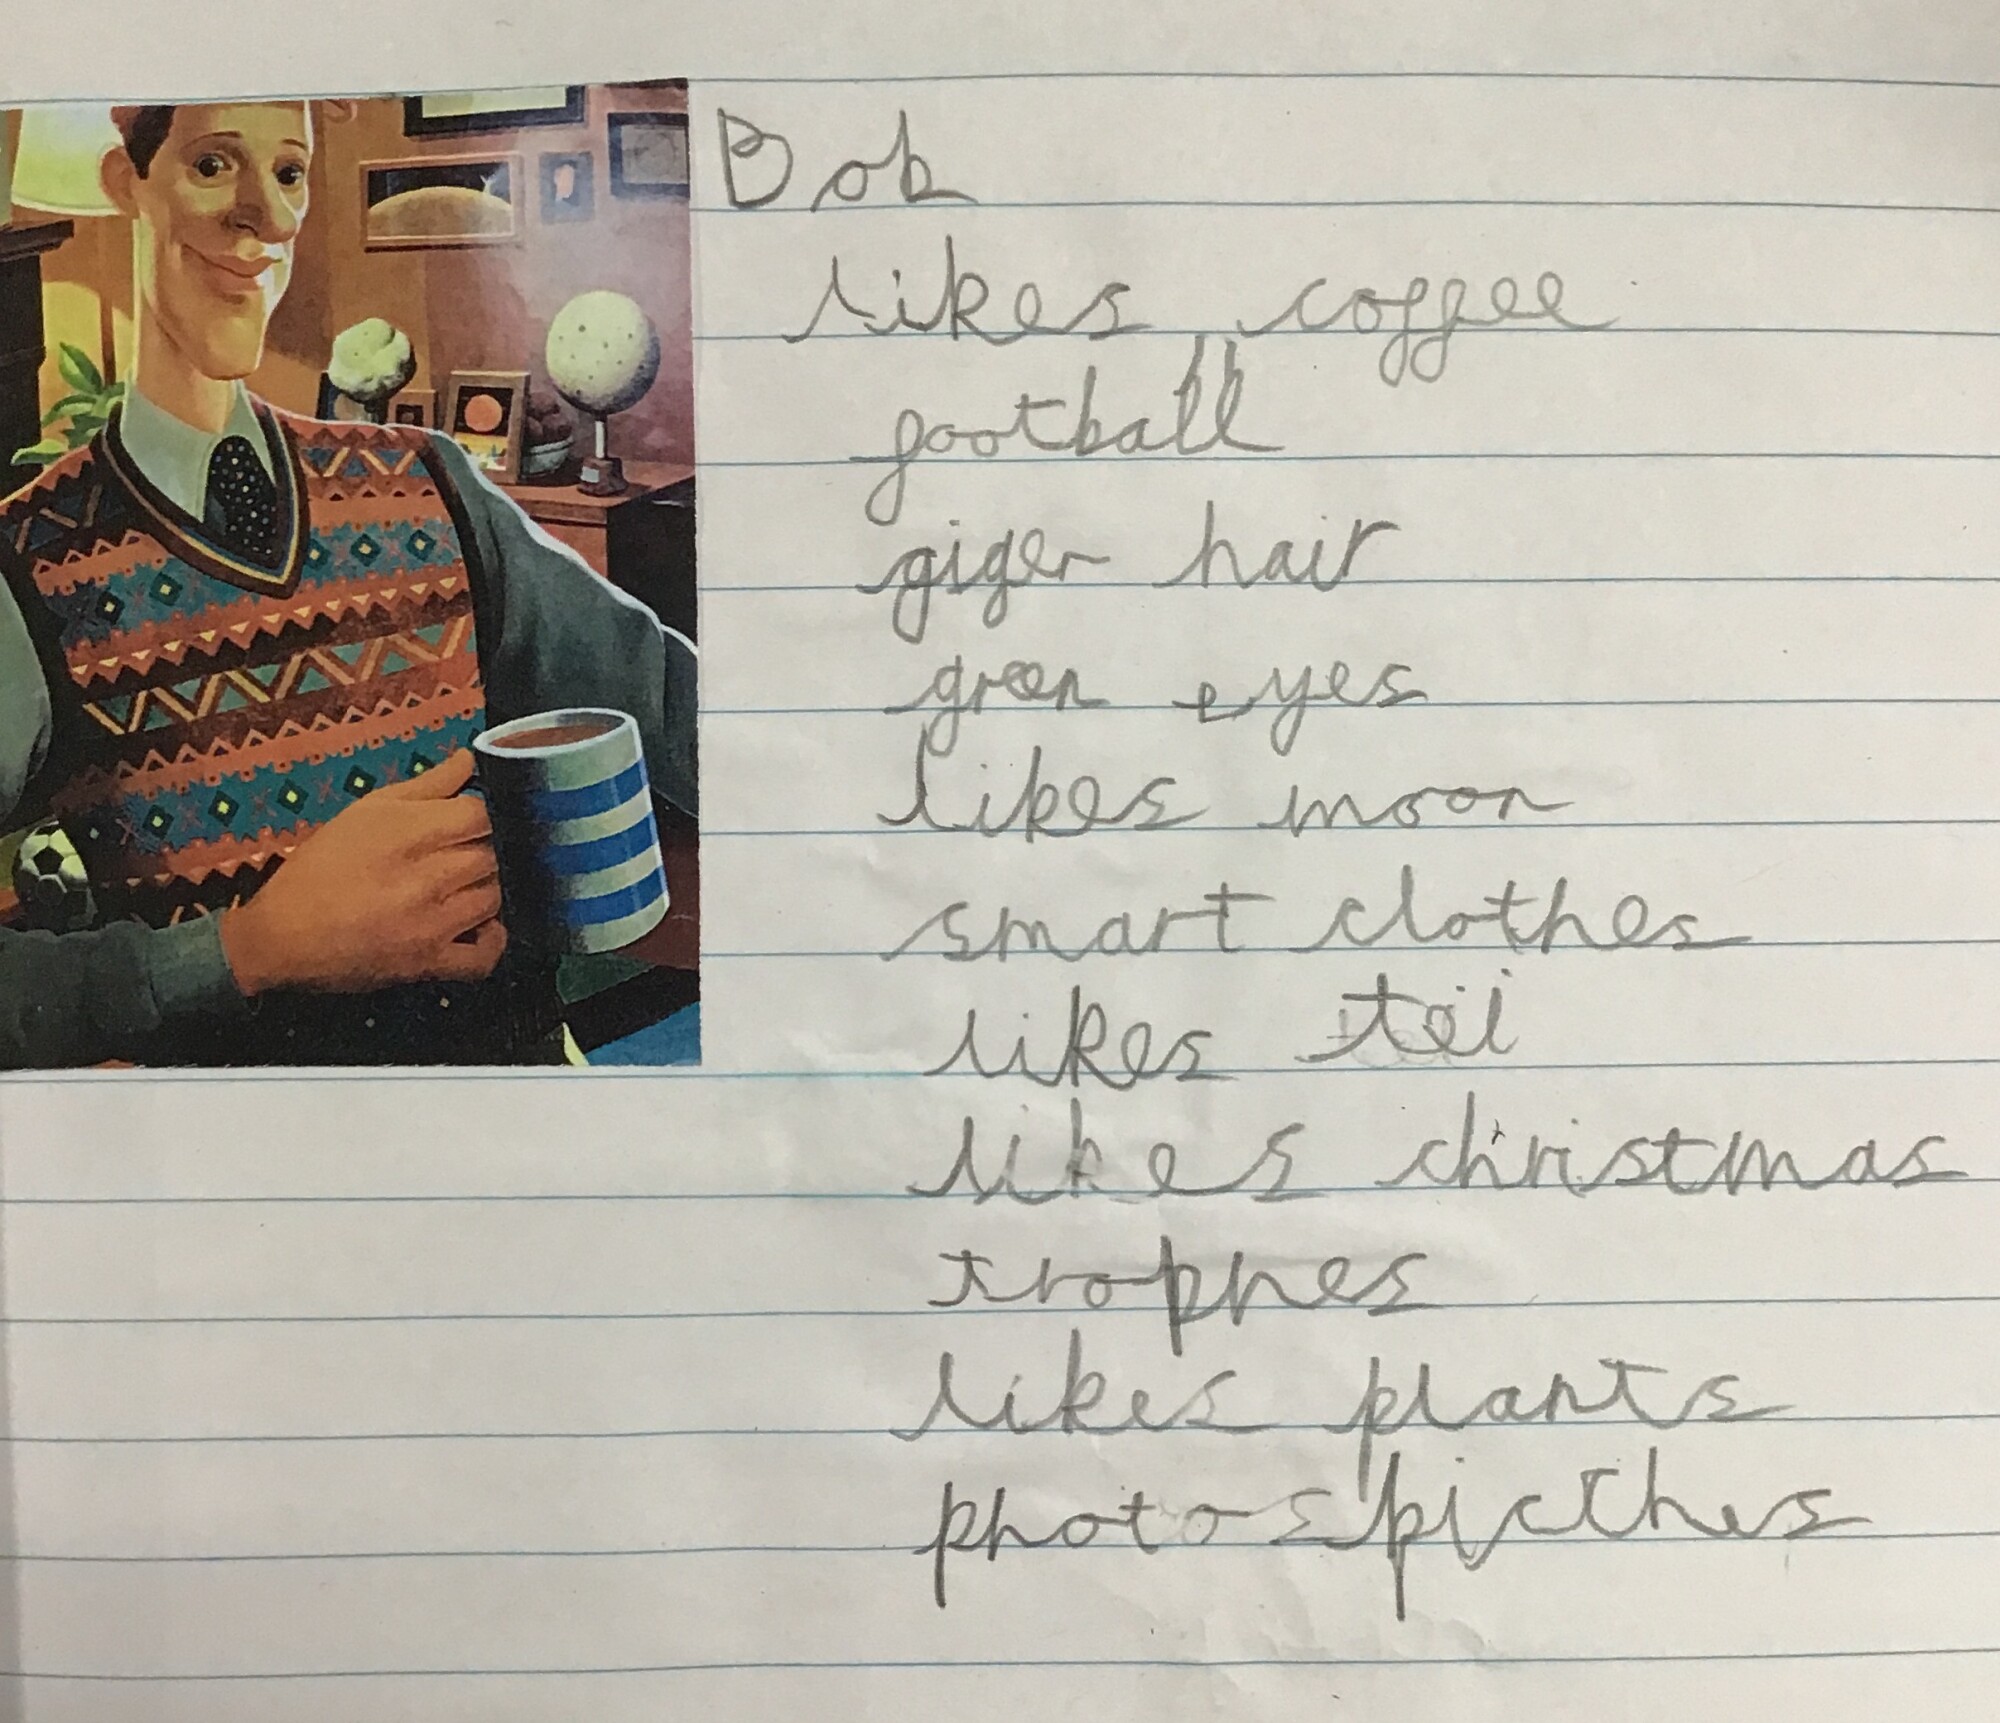 Bob
likes coffee
football
giger hair
green eyes
likes moon
smart clothes
likes
likes christmas
trophes
likes plants
photos picthes